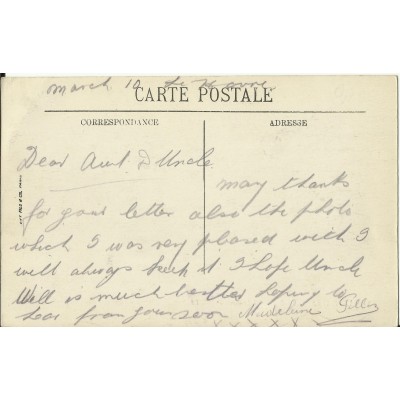 March 10 Le Havre
CARTE POSTALE
CORRESPONDANCE
ADRESSE
Dear Aunt & Uncle
may thanks
for your letter also the photo
which I was very pleased with I
will always keep it I hope Uncle
Will is much better hoping to
hear from you soon Madeleine